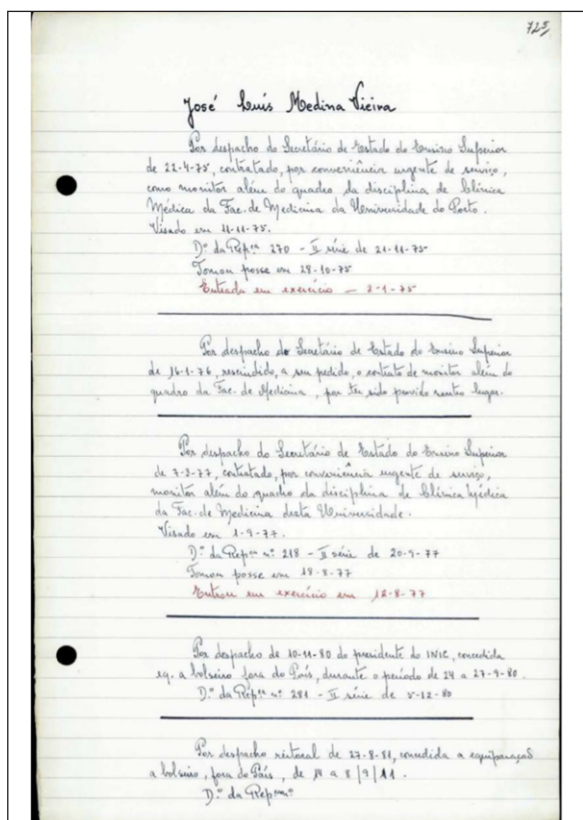 725
José Luís Medina Vieira
Por despacho do Secretário de Estado do Ensino Superior
de 22-4-75, contratado, por conveniência urgente de serviço,
como monitor além do quadro da disciplina de Clínica
Médica da Fac. de Medicina da Universidade do Porto.
Visado em 11-11-75.
D.º da Rep.ca 270 - II série de 21-11-75
Tomou posse em 28-10-75
Entrada em exercício - 2-1-75
Por despacho do Secretário de Estado do Ensino Superior
de 16-1-76, rescindido, a seu pedido, o contrato de monitor além do
quadro da Fac. de Medicina, por ter sido provido noutro lugar.
Por despacho do Secretário de Estado do Ensino Superior
de 7-3-77, contratado, por conveniência urgente de serviço,
monitor além do quadro da disciplina de Clínica Médica
da Fac. de Medicina desta Universidade.
Visado em 1-9-77.
D.º da Rep.ca n.º 218 - II série de 20-9-77
Tomou posse em 18-8-77
Entrou em exercício em 12-8-77
Por despacho de 10-11-80 do presidente do INIC, concedida
eq. a bolseiro fora do País, durante o período de 24 a 27-9-80.
D.º da Rep.ca n.º 281 - II série de 5-12-80
Por despacho reitoral de 27-8-81, concedida a equiparação
a bolseiro, fora do País, de a 8/9/
D.º da Rep.ca n.º